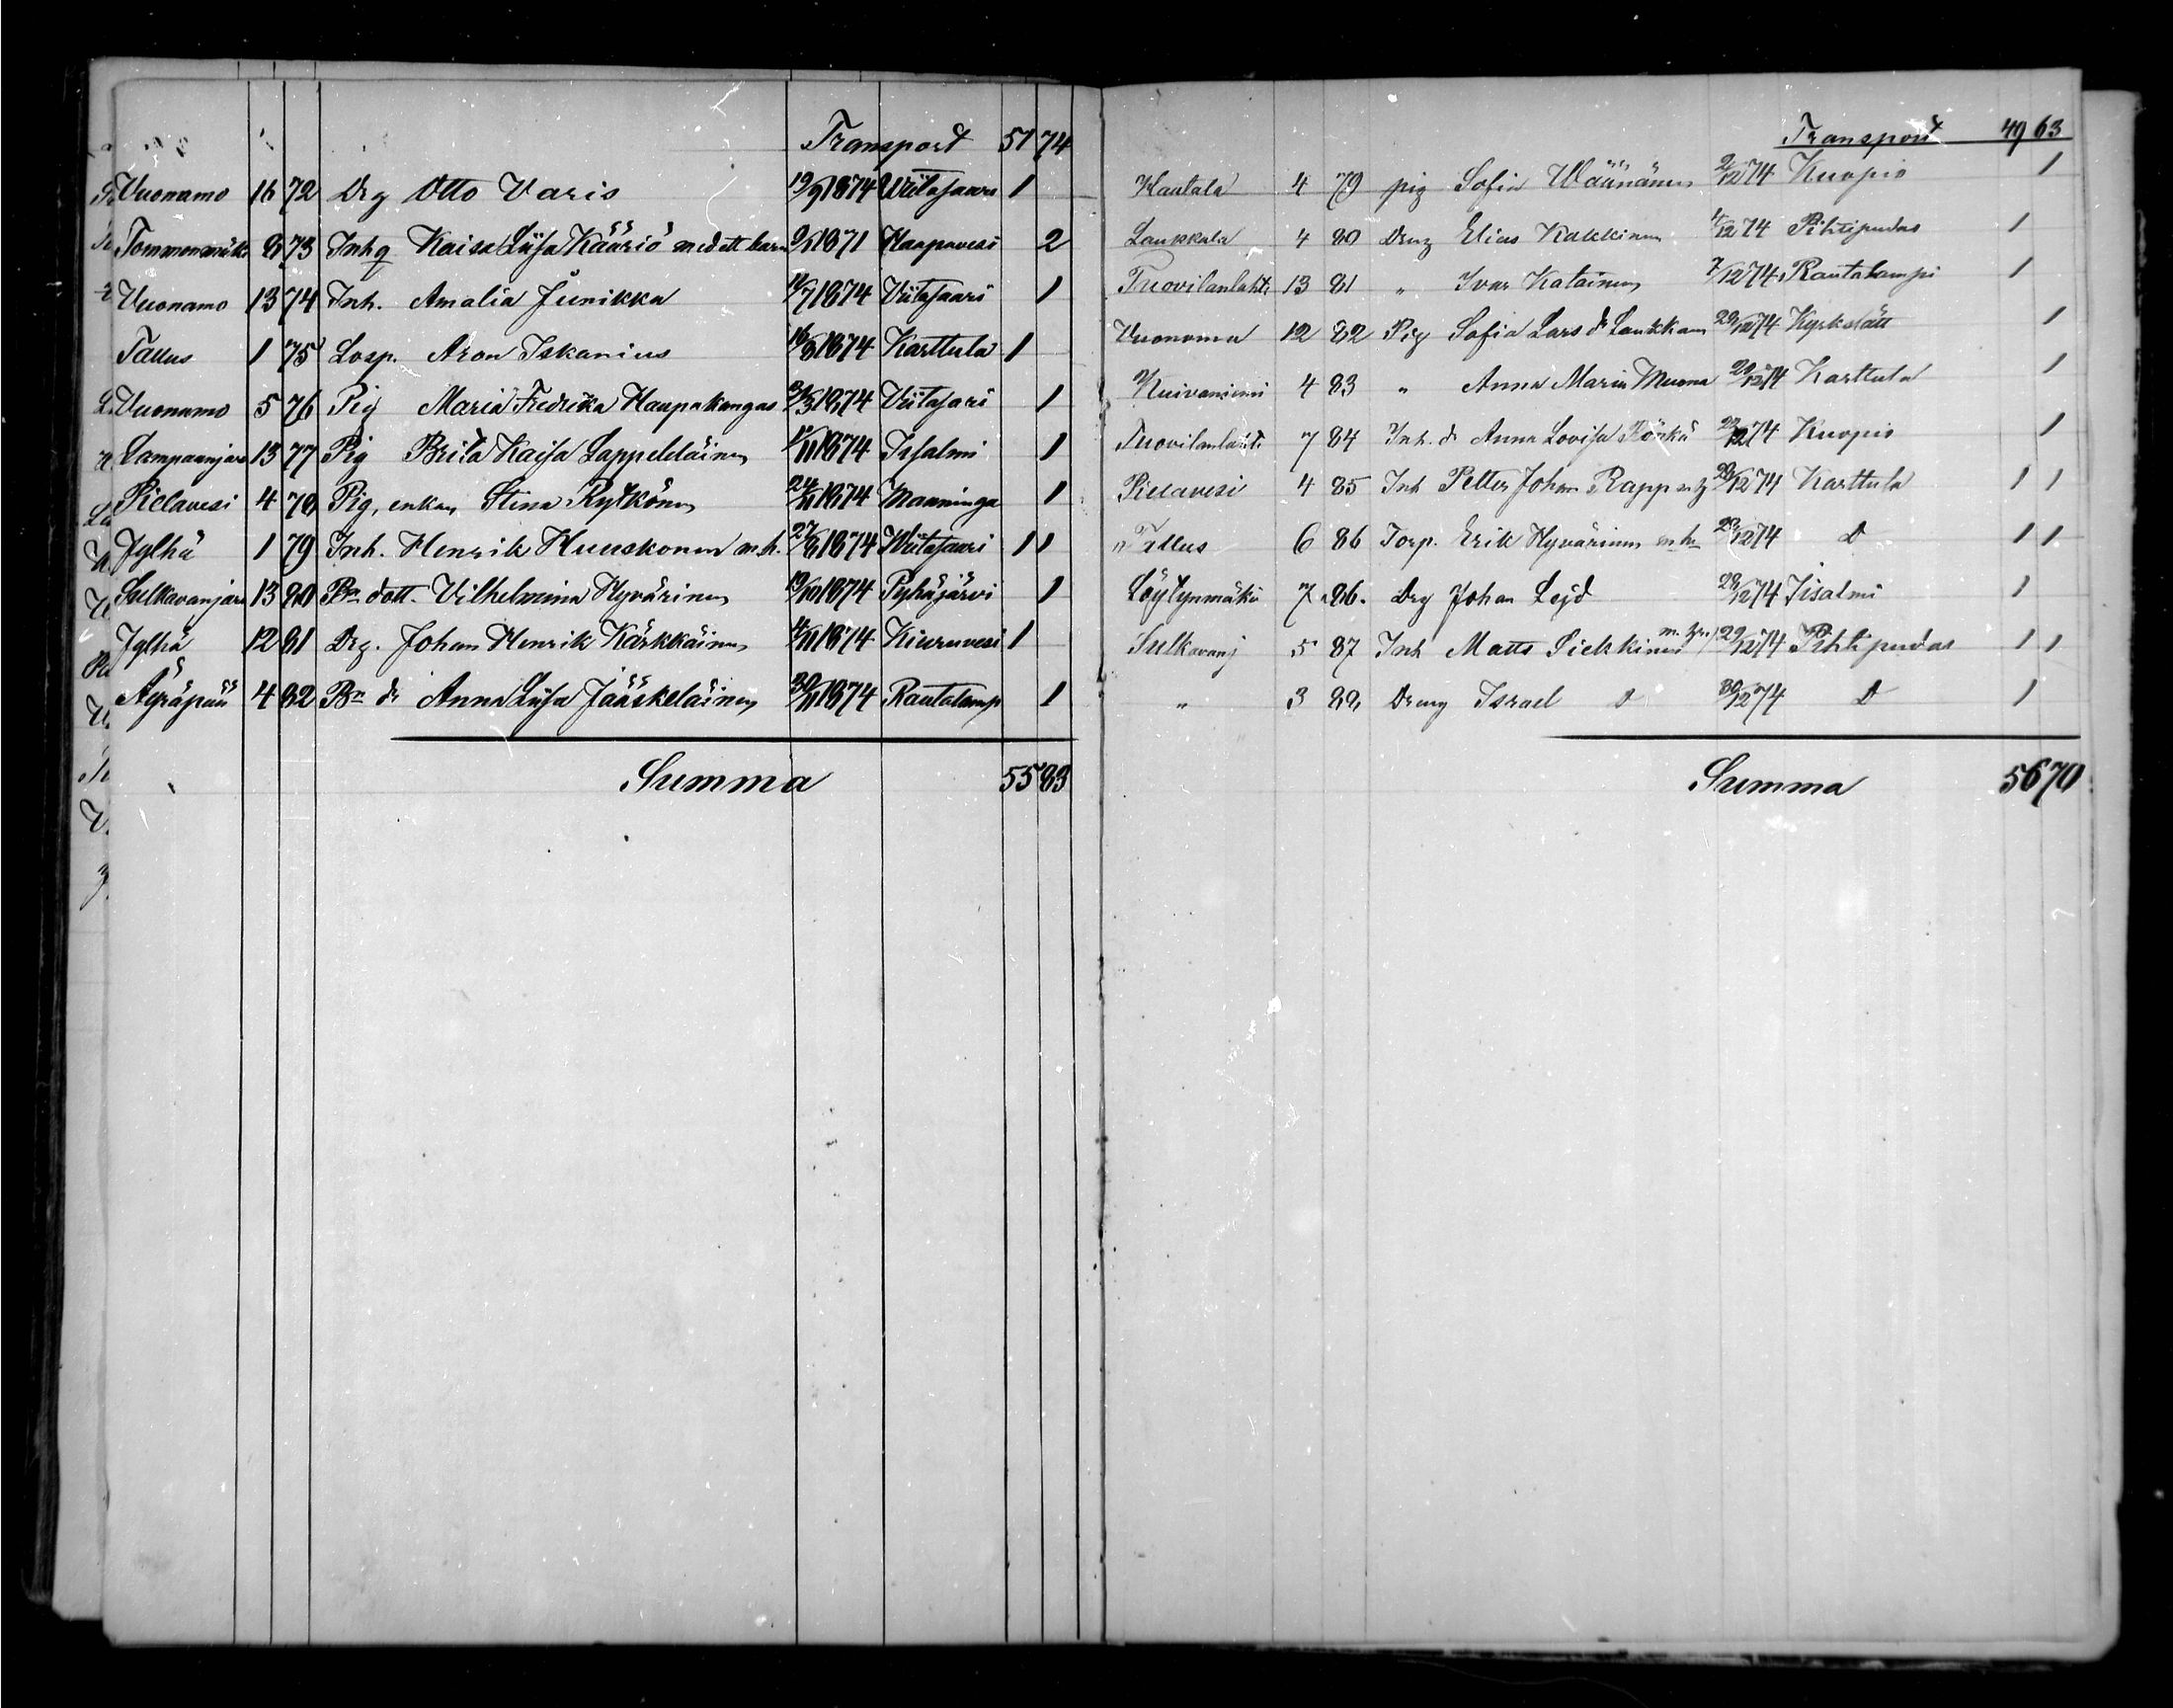 Transport 51 74
Vuonamo 16 72 Drg Otto Varis 19/9 1874 Viitasaari 1
Tommonmäki 8 73 Inhq Kaisa Liisa Kääriö med ett barn 9/1 1871 Haapavesi 2
Vuonamo 13 74 Inh. Amalia Junikka 1874 Viitasaari 1
Tallus 1 75 Losp. Aron Iskanius 16/8 1874 Karttula 1
Vuonamo 5 76 Pig Maria Fredrika Haapakangas 1874 Viitasari 1
Lampaanjärv 13 77 Pig Brita Kaisa Lappeteläinen 1874 Iisalmi 1
Pielavesi 4 78 Pig, enkan Stina Rytkönen 1874 Maaninga 1
Jylhä 1 79 Inh. Henrik Huuskonen m.h. 1874 Viitasaari 1 1
Sulkavanjärv 13 80 Bn dott. Vilhelmina Hyvärinen 19/10 1874 Pyhäjärvi 1
Jylhä 12 81 Drg. Johan Henrik Kärkkäinen 4/11 1874 Kiuruvesi 1
Äyräpää 4 82 Bn dr Anna Liisa Jääskeläinen 30/11 1874 Rautalamp 1
Summa 55 83
Transport 49 63
Kautala 4 79 pig Sofia Wäänänen 2/12 74 Kuopio 1
Laukkala 4 80 Dreng Elias Kakkinen 4/12 74 Pihtipudas 1
Tuovilanlahti 13 81 " Ivar Katainen 7/12 74 Rautalampi 1
Vuonoma 12 82 Pig Sofia Lars dr Laukkan 29/12 74 Kyrkslätt 1
Kuivaniemi 4 83 " Anna Maria Muona 29/12 74 Karttula 1
Tuovilanlahti 7 84 Inh. dr Anna Lovisa Rönkä 29/12 74 Kuopio 1
Pielavesi 4 85 Inh Petter Johan Rapp 29/12 74 Karttula 1 1
Tallus 6 86 Torp. Erik Hyvärinen m h 29/12 74 D 1 1
Löytynmäki 7 86. Drg Johan Lejd 29/12 74 Iisalmi 1
Sulkavanj 5 87 Inh Matts Siekkinen 29/12 74 Pihtipudas 1 1
" 3 88 Dreng Israel D 30/12 74 D 1
Summa 56 70